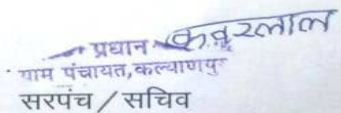 प्रधान कवरलाल
ग्राम पंचायत,कल्याणपुर
सरपंच / सचिव